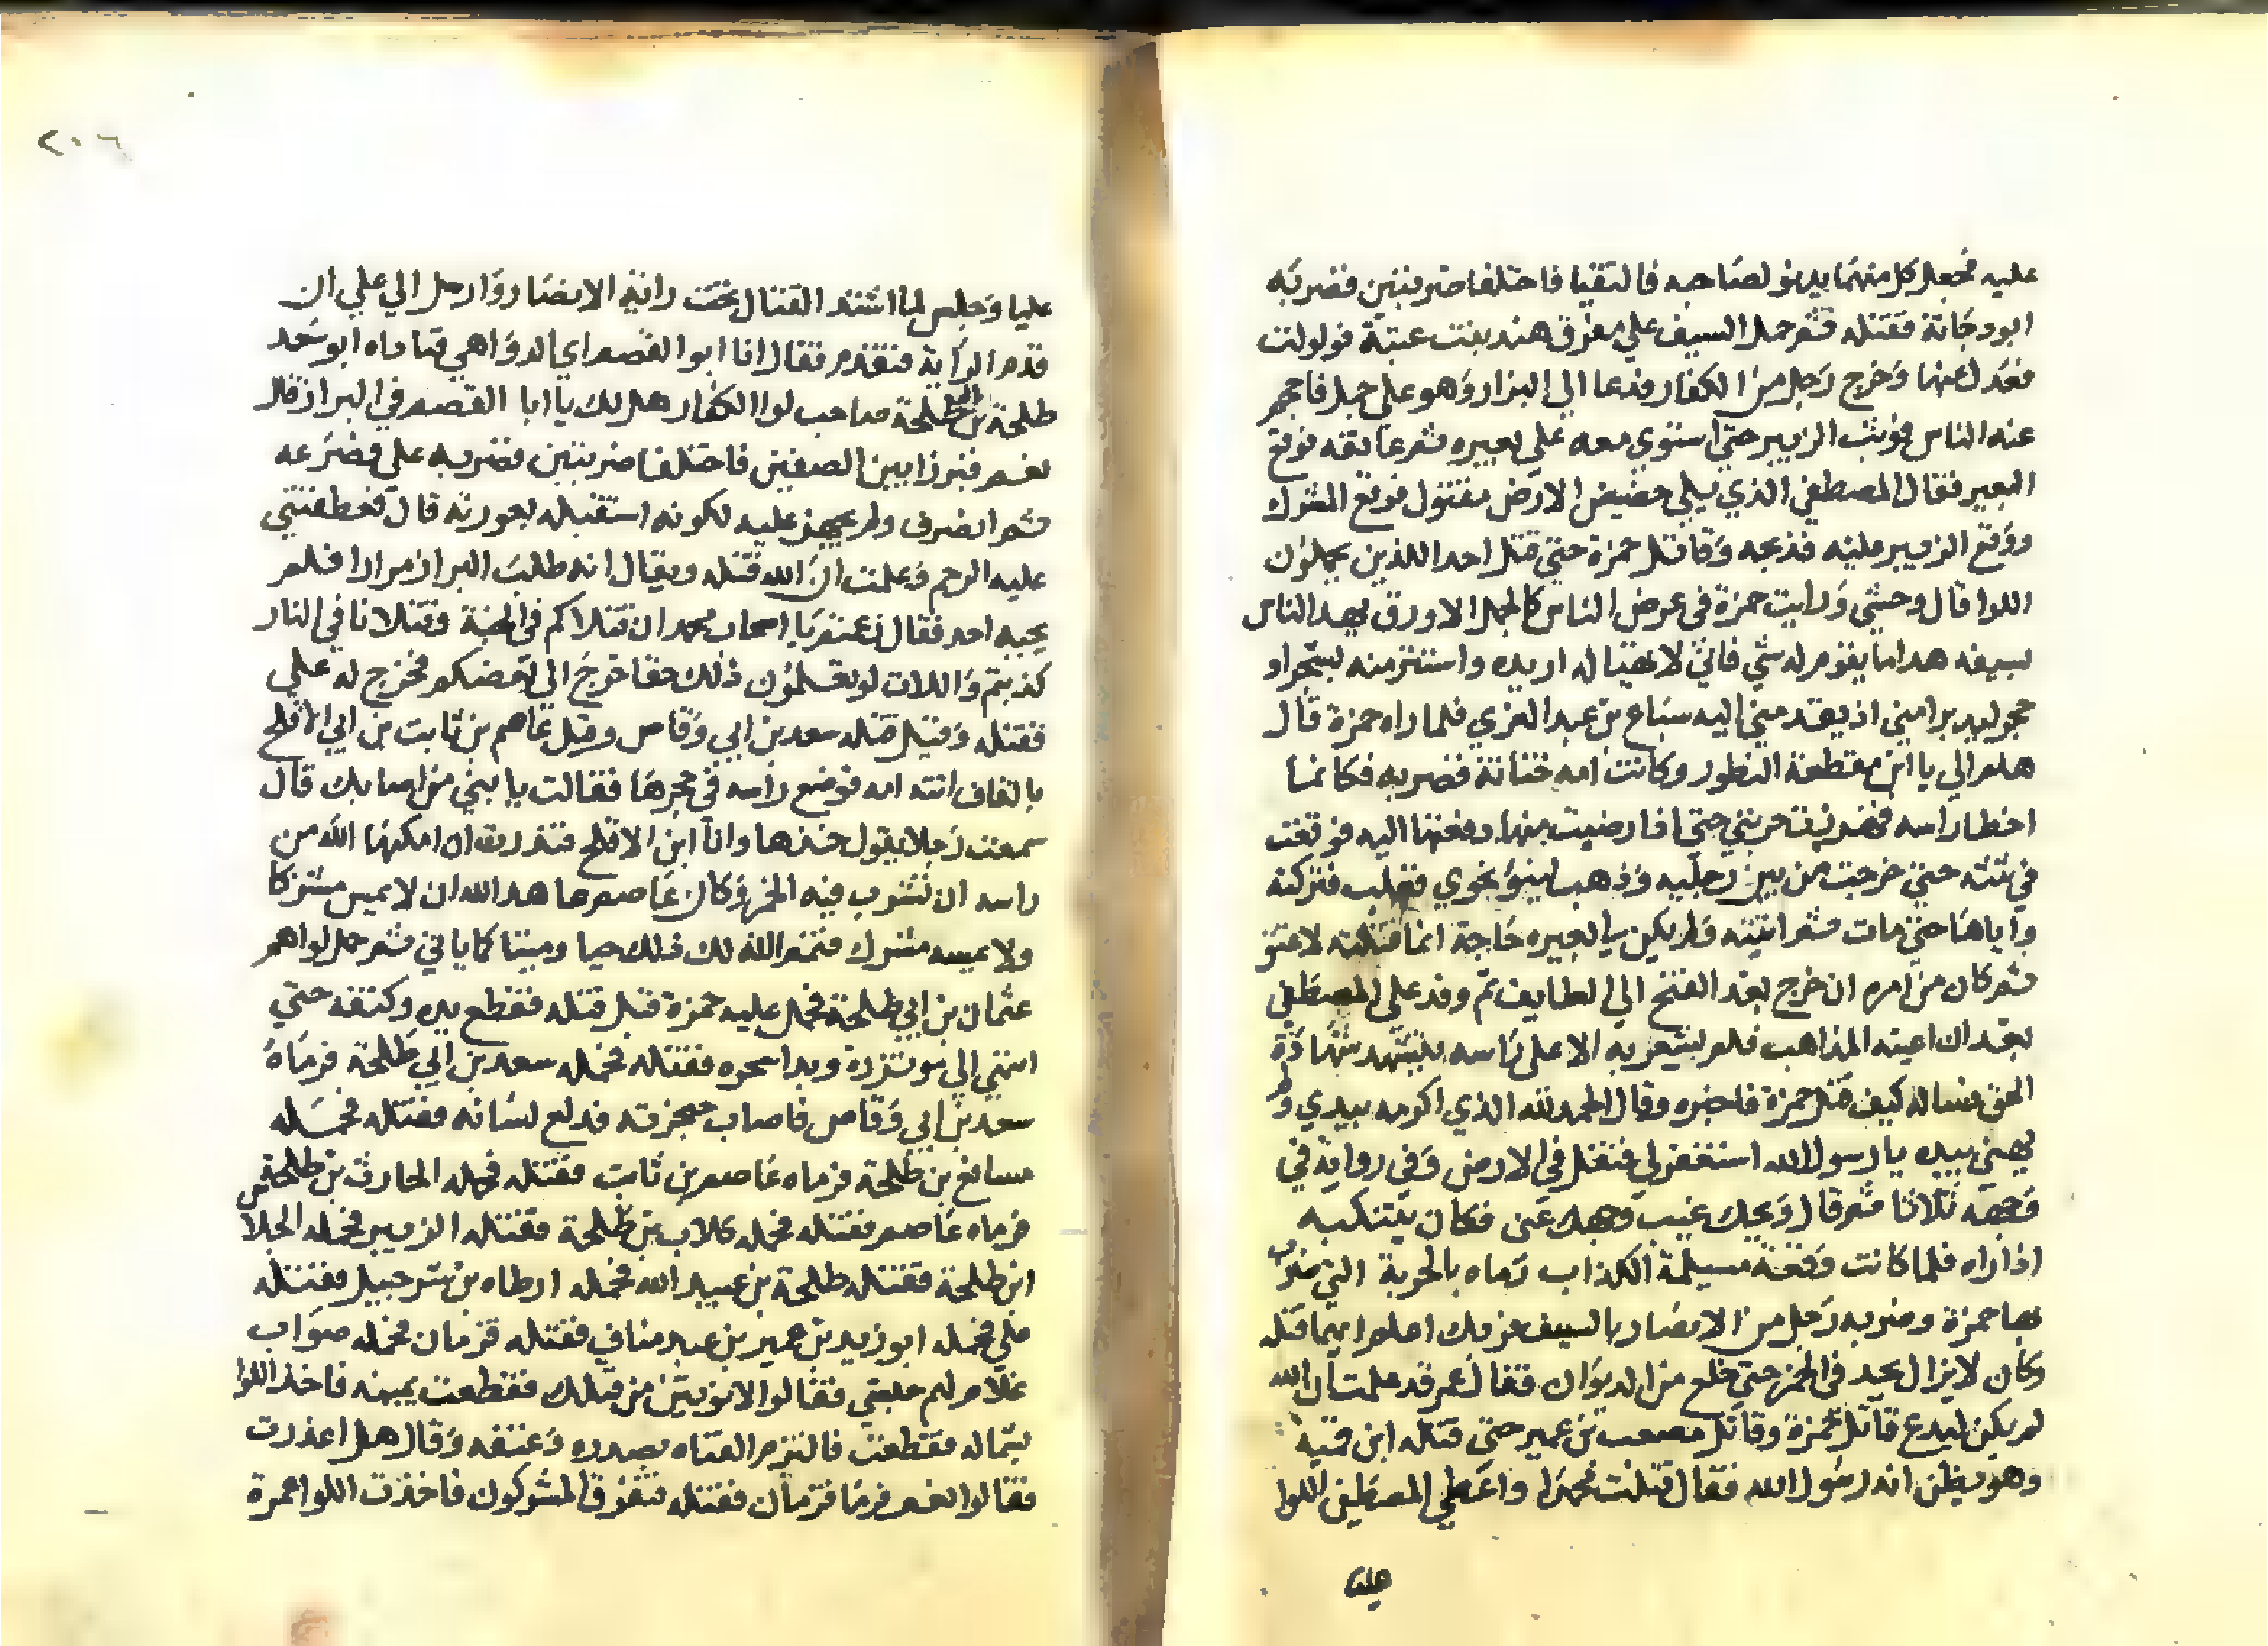 عليه فجعل كل منهما يدنو لصاحبه فالتقيا فاختلفا ضربتين فضربه
ابو دجانة فقتله ثم حمل السيف علي مفرق هند بنت عتبة فولولت
فعدل عنها وخرج رجل من الكفار فدعا الي البراز وهو علي جمل فاحجم
عنه الناس فوثب الزبير حتي استوي معه علي بعيره ثم عانقه فوقع
البعير فقال المصطفي الذي يلي حضيض الارض مقتول فوقع المشرك
ووقع الزبير عليه فذبحه وقاتل حمزة حتي قتل احد اللذين يحملون
اللوا قال وحشي ورايت حمزة في عرض الناس كالجمل الاورق يهد الناس
بسيفه هدا ما يقوم له شي فاني لاتهيا له اريده واستتر منه بشجر او
حجر ليدبر امني اذ يقدمني اليه سباع بن عبد العزي فلما راه حمزة قال
هلم الي يا ابن مقطعة البظور وكانت امه ختانة فضربه فكانما
اخطا راسه فهززت حربتي حتي اذا رضيت منها دفعتها اليه فوقعت
في ثنته حتي خرجت من بين رجليه وذهب لينو نحوي فغلب فتركته
واياها حتي مات ثم اتيته ولم يكن لي بغيره حاجة انما قتلته لاعتق
ثم كان من امره ان خرج بعد الفتح الي الطايف ثم وفد علي المصطفي
بعد ان اعيته المذاهب فلم يشعر به الا علي راسه يتشهد شهادة
الحق فساله كيف قتل حمزة فاخبره وقال الحمد لله الذي اكرمه بيدي ولم
يهني بيده يا رسول الله استغفر لي فتفل في الارض وفي رواية في
وجهه ثلاثا ثم قال ويحك غيب وجهك عني فكان يتنكبه
اذا راه فلما كانت وقعة مسيلمة الكذاب رماه بالحربة التي ضرب
بها حمزة وضربه رجل من الانصار بالسيف فربك اعلم ايهما قتله
وكان لا يزال يحد في الخمر حتي خلع من الديوان فقال عمر قد علمت ان الله
لم يكن ليدع قاتل حمزة وقاتل مصعب بن عمير حتي قتله ابن قميه
وهو يظن انه رسول الله فقال قتلت محمدا واعطي المصطفي اللوا
عليا
٢٠٦
عليا وجلس لما اشتد القتال تحت راية الانصار وارسل الي علي ان
قدم الراية فتقدم فقال انا ابو القصم اي الدواهي فناداه ابو سعد
طلحة بن ابي طلحة صاحب لوا الكفار هل لك يا ابا القصم في البراز قال
نعم فبرزا بين الصفين فاختلفا ضربتين فضربه علي فصرعه
ثم انصرف ولم يجهز عليه لكونه استقبله بعورته قال فعطفتني
عليه الرحم وعلمت ان الله قتله ويقال انه طلب البراز مرارا فلم
يجبه احد فقال زعمتم يا اصحاب محمد ان قتلاكم في الجنة وقتلانا في النار
كذبتم واللات لو تعلمون ذلك حقا خرج الي بعضكم فخرج له علي
فقتله وقيل قتله سعد بن ابي وقاص وقتل عاصم بن ثابت بن ابي الاقلح
امه فوضع راسه في حجرها فقالت يا بني من اصابك قال
سمعت رجلا يقول خذها وانا ابن الاقلح فنذرت ان امكنها الله من
راسه ان تشرب فيه الخمر وكان عاصم عاهد الله ان لا يمس مشركا
ولا يمسه مشرك فتمم الله لك ذلك حيا وميتا كما ياتي ثم حمل لواهم
عثمان بن ابي طلحة فحمل عليه حمزة قبل قتله فقطع يده وكتفه حتي
انتهي الي موتزره وبدا سحره فقتله فحمله سعد بن ابي طلحة فرماه
سعد بن ابي وقاص فاصاب حنجرته فدلع لسانه فقتله فحمله
مسافع بن طلحة فرماه عاصم بن ثابت فقتله فحمله الحارث بن طلحة
فرماه عاصم فقتله فحمله كلاب بن طلحة فقتله الزبير فحمله الجلاس
ابن طلحة فقتله طلحة بن عبيد الله فحمله ارطاه بن شرحبيل فقتله
علي فحمله ابو زيد بن عمير بن عبد مناف فقتله قزمان فحمله صواب
غلام لهم حبشي فقالوا لا نوتين من قبلك فقطعت يمينه فاخذ اللوا
بشماله فقطعت فالتزم القناه بصدره وعنقه وقال هل اعذرت
فقالوا نعم فرماه قزمان فقتله فتفرق المشركون فاخذت اللوا عمرة